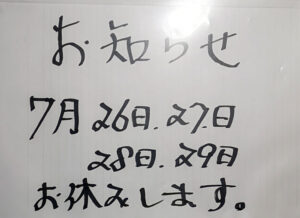 お知らせ
7月26日.27.日
28日.29日
お休みします。